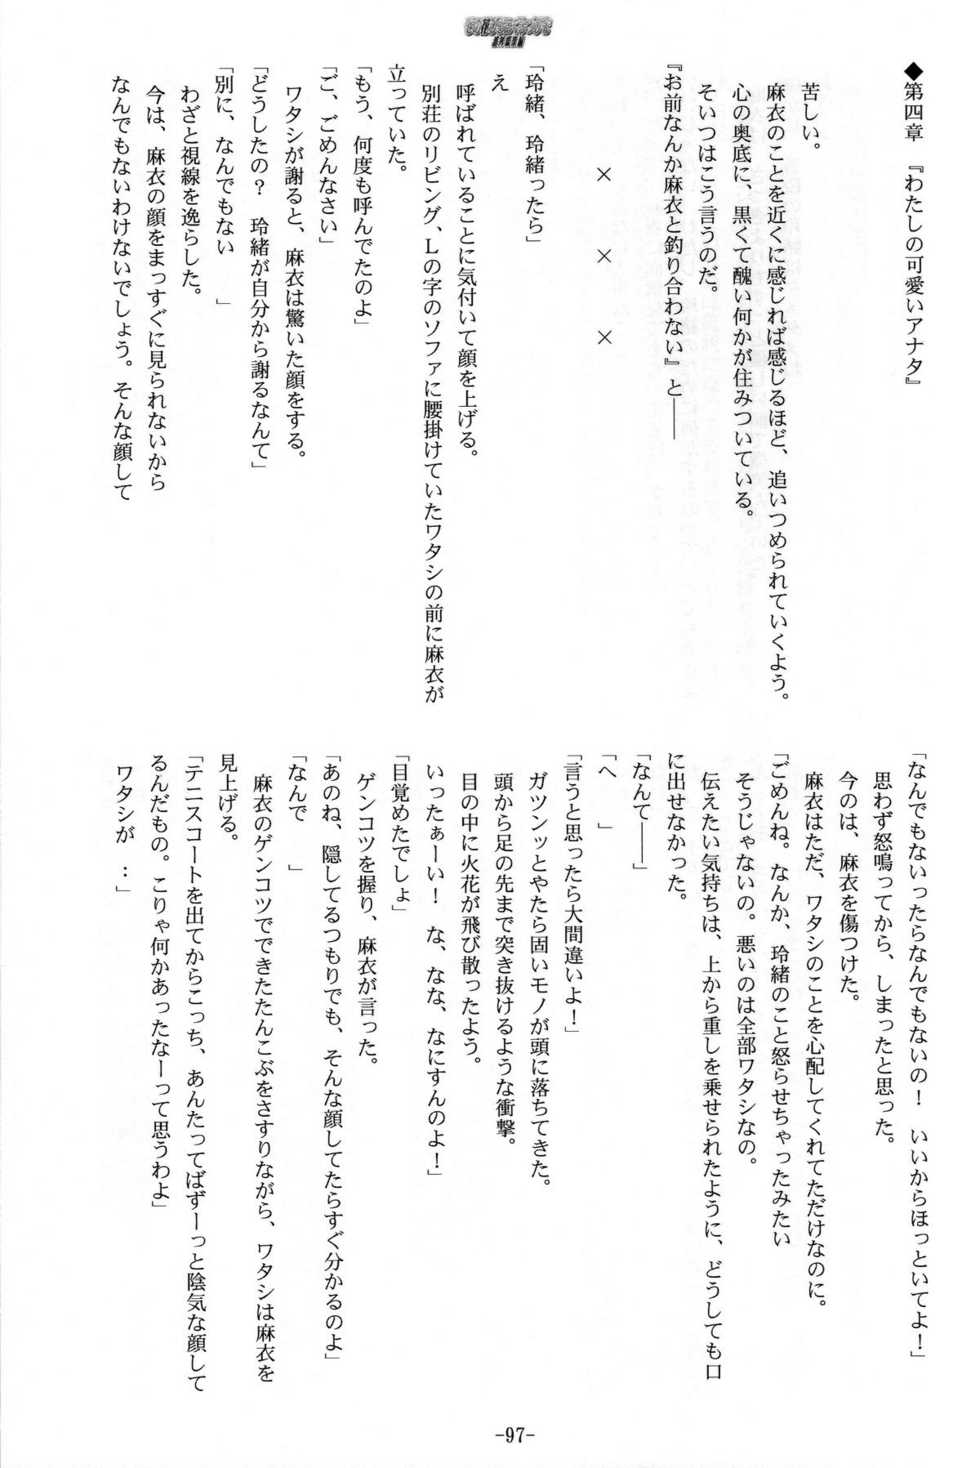 ◆第四章　『わたしの可愛いアナタ』
苦しい。
麻衣のことを近くに感じれば感じるほど、追いつめられていくよう。
心の奥底に、黒くて醜い何かが住みついている。
そいつはこう言うのだ。
『お前なんか麻衣と釣り合わない』と――
×　×　×
「玲緒、玲緒ったら」
え
呼ばれていることに気付いて顔を上げる。
別荘のリビング、Lの字のソファに腰掛けていたワタシの前に麻衣が
立っていた。
「もう、何度も呼んでたのよ」
「ご、ごめんなさい」
ワタシが謝ると、麻衣は驚いた顔をする。
「どうしたの？　玲緒が自分から謝るなんて」
「別に、なんでもない　　」
わざと視線を逸らした。
今は、麻衣の顔をまっすぐに見られないから
なんでもないわけないでしょう。そんな顔して
「なんでもないったらなんでもないの！　いいからほっといてよ！」
思わず怒鳴ってから、しまったと思った。
今のは、麻衣を傷つけた。
麻衣はただ、ワタシのことを心配してくれてただけなのに。
「ごめんね。なんか、玲緒のこと怒らせちゃったみたい
そうじゃないの。悪いのは全部ワタシなの。
伝えたい気持ちは、上から重しを乗せられたように、どうしても口
に出せなかった。
「なんて――」
「へ　　」
「言うと思ったら大間違いよ！」
ガツンッとやたら固いモノが頭に落ちてきた。
頭から足の先まで突き抜けるような衝撃。
目の中に火花が飛び散ったよう。
いったぁーい！　な、なな、なにすんのよ！」
「目覚めたでしょ」
ゲンコツを握り、麻衣が言った。
「あのね、隠してるつもりでも、そんな顔してたらすぐ分かるのよ」
「なんで　　」
麻衣のゲンコツでできたたんこぶをさすりながら、ワタシは麻衣を
見上げる。
「テニスコートを出てからこっち、あんたってばずーっと陰気な顔して
るんだもの。こりゃ何かあったなーって思うわよ」
ワタシが　：」
-97-